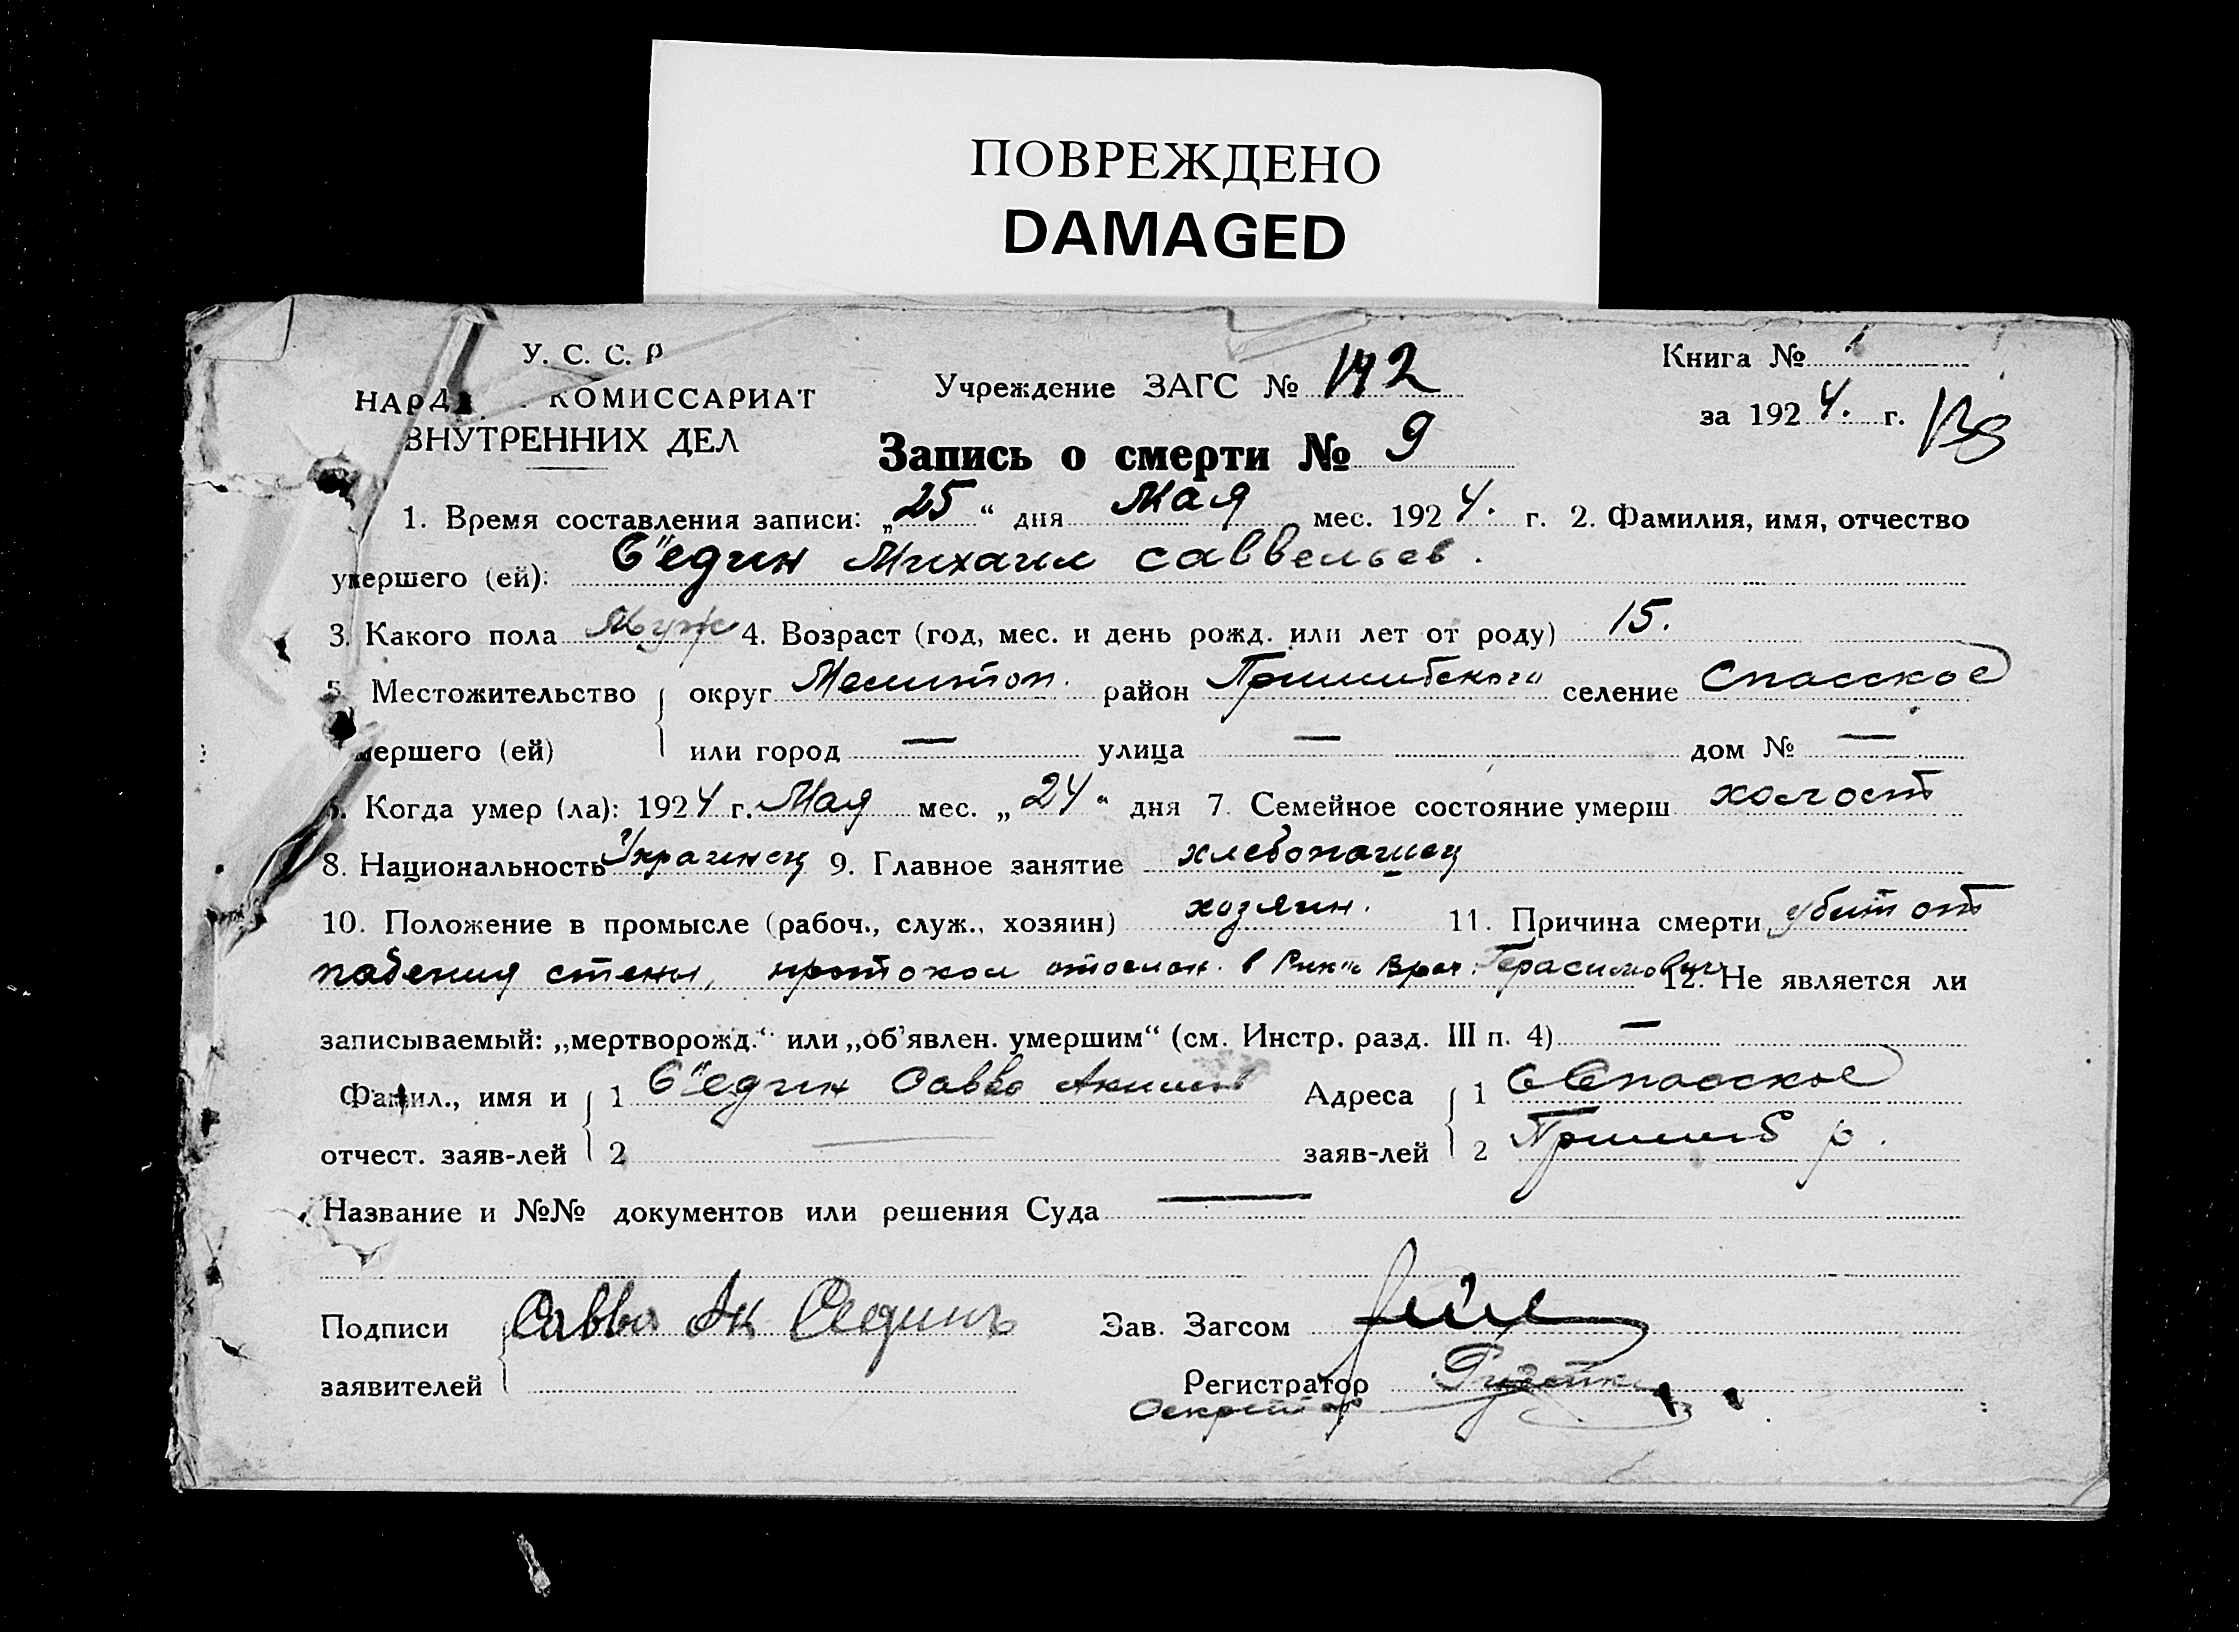 ПОВРЕЖДЕНО
DAMAGED
У. С. С. Р
НАРОД КОМИССАРИАТ
ВНУТРЕННИХ ДЕЛ
Учреждение ЗАГС № 142
Книга № 1
за 1924. г.
Запись о смерти № 9
1. Время составления записи: „25“ дня Мая мес. 1924. г. 2. Фамилия, имя, отчество
умершего (ей): С"един Михаил Саввельев.
3. Какого пола Муж 4. Возраст (год, мес. и день рожд. или лет от роду) 15.
5. Местожительство округ Мелитоп. район Пришибского селение Спасское
умершего (ей) или город — улица — дом № —
6. Когда умер (ла): 1924 г. Мая мес. „24“ дня 7. Семейное состояние умерш холост
8. Национальность Украинец 9. Главное занятие хлебопашец
10. Положение в промысле (рабоч., служ., хозяин) хозяин. 11. Причина смерти убит от
падения стены, протокол отослан. в Рик Врач. Герасимович 12. Не является ли
записываемый: „мертворожд.“ или „об'явлен. умершим“ (см. Инстр. разд. III п. 4) —
Фамил., имя и 1 С"един Савва Акимов Адреса 1 С Спасское
отчест. заяв-лей 2 — заяв-лей 2 Пришиб р.
Название и №№ документов или решения Суда —
Подписи Савва Ак Сединъ Зав. Загсом
заявителей Регистратор
Секретар